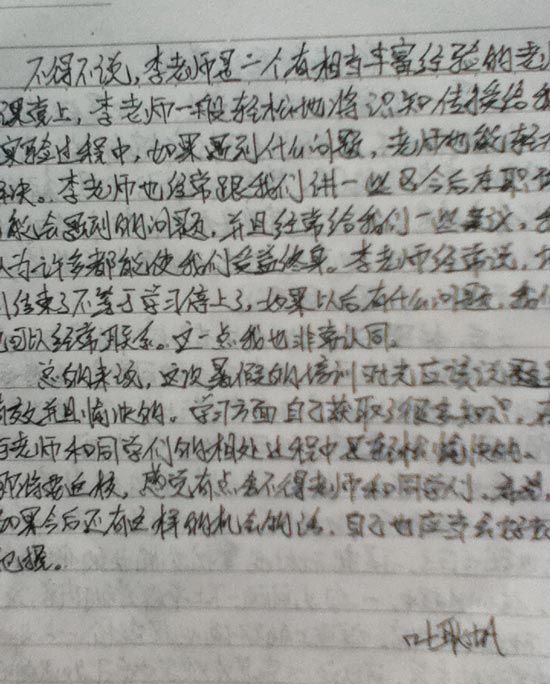 不得不说,李老师是一个有相当丰富经验的老
课堂上,李老师一般轻松地将识知传授给我
实验过程中,如果遇到什么问题,老师也能轻
解决。李老师也经常跟我们讲一些以后在职
可能会遇到的问题,并且经常给我们一些建议,
认为许多都能使我们受益终身。李老师经常说,
训结束了不等于学习停止了,如果以后有什么问题,我们
也可以经常联系。这一点我也非常认同。
总的来说,这次暑假的培训时光应该说
有效并且愉快的。学习方面自己获取了很多知识,
与老师和同学们的相处过程中是愉快的。
即将要返校,感觉有点舍不得老师和同学们,
如果今后还有这样的机会的话,自己也应当去好好
把握。